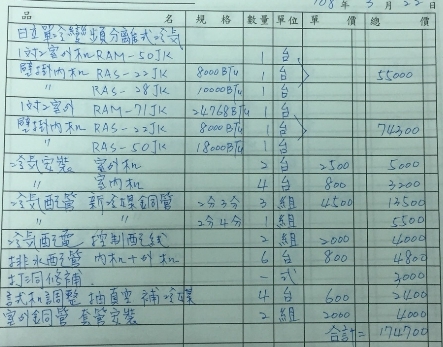 108 年 3 月 22 日
品 名 規 格 數量 單位 單 價 總 價
日立單冷變頻分離式冷氣
1對2室外机 RAM-50JK 1 台
壁掛內机 RAS-22JK 8000BTU 1 台 55000
〃 RAS-28JK 10000BTU 1 台
1對2室外 RAM-71JK 24768BTU 1 台
壁掛內机 RAS-22JK 8000BTU 1 台 74300
RAS-50JK 18000BTU 1 台
冷氣安裝 室外机 2 台 2500 5000
〃 室內机 4 台 800 3200
冷氣配管 新冷媒銅管 2分3分 3 組 4500 13500
〃 〃 2分4分 1 組 5500
冷氣配電 控制配線 2 組 2000 4000
排水配管 內机+外机 6 台 800 4800
打洞修補 一 式 3000
試机調整 抽真空 補冷媒 4 台 600 2400
室外銅管 套管安裝 2 組 2000 4000
合計= 174700